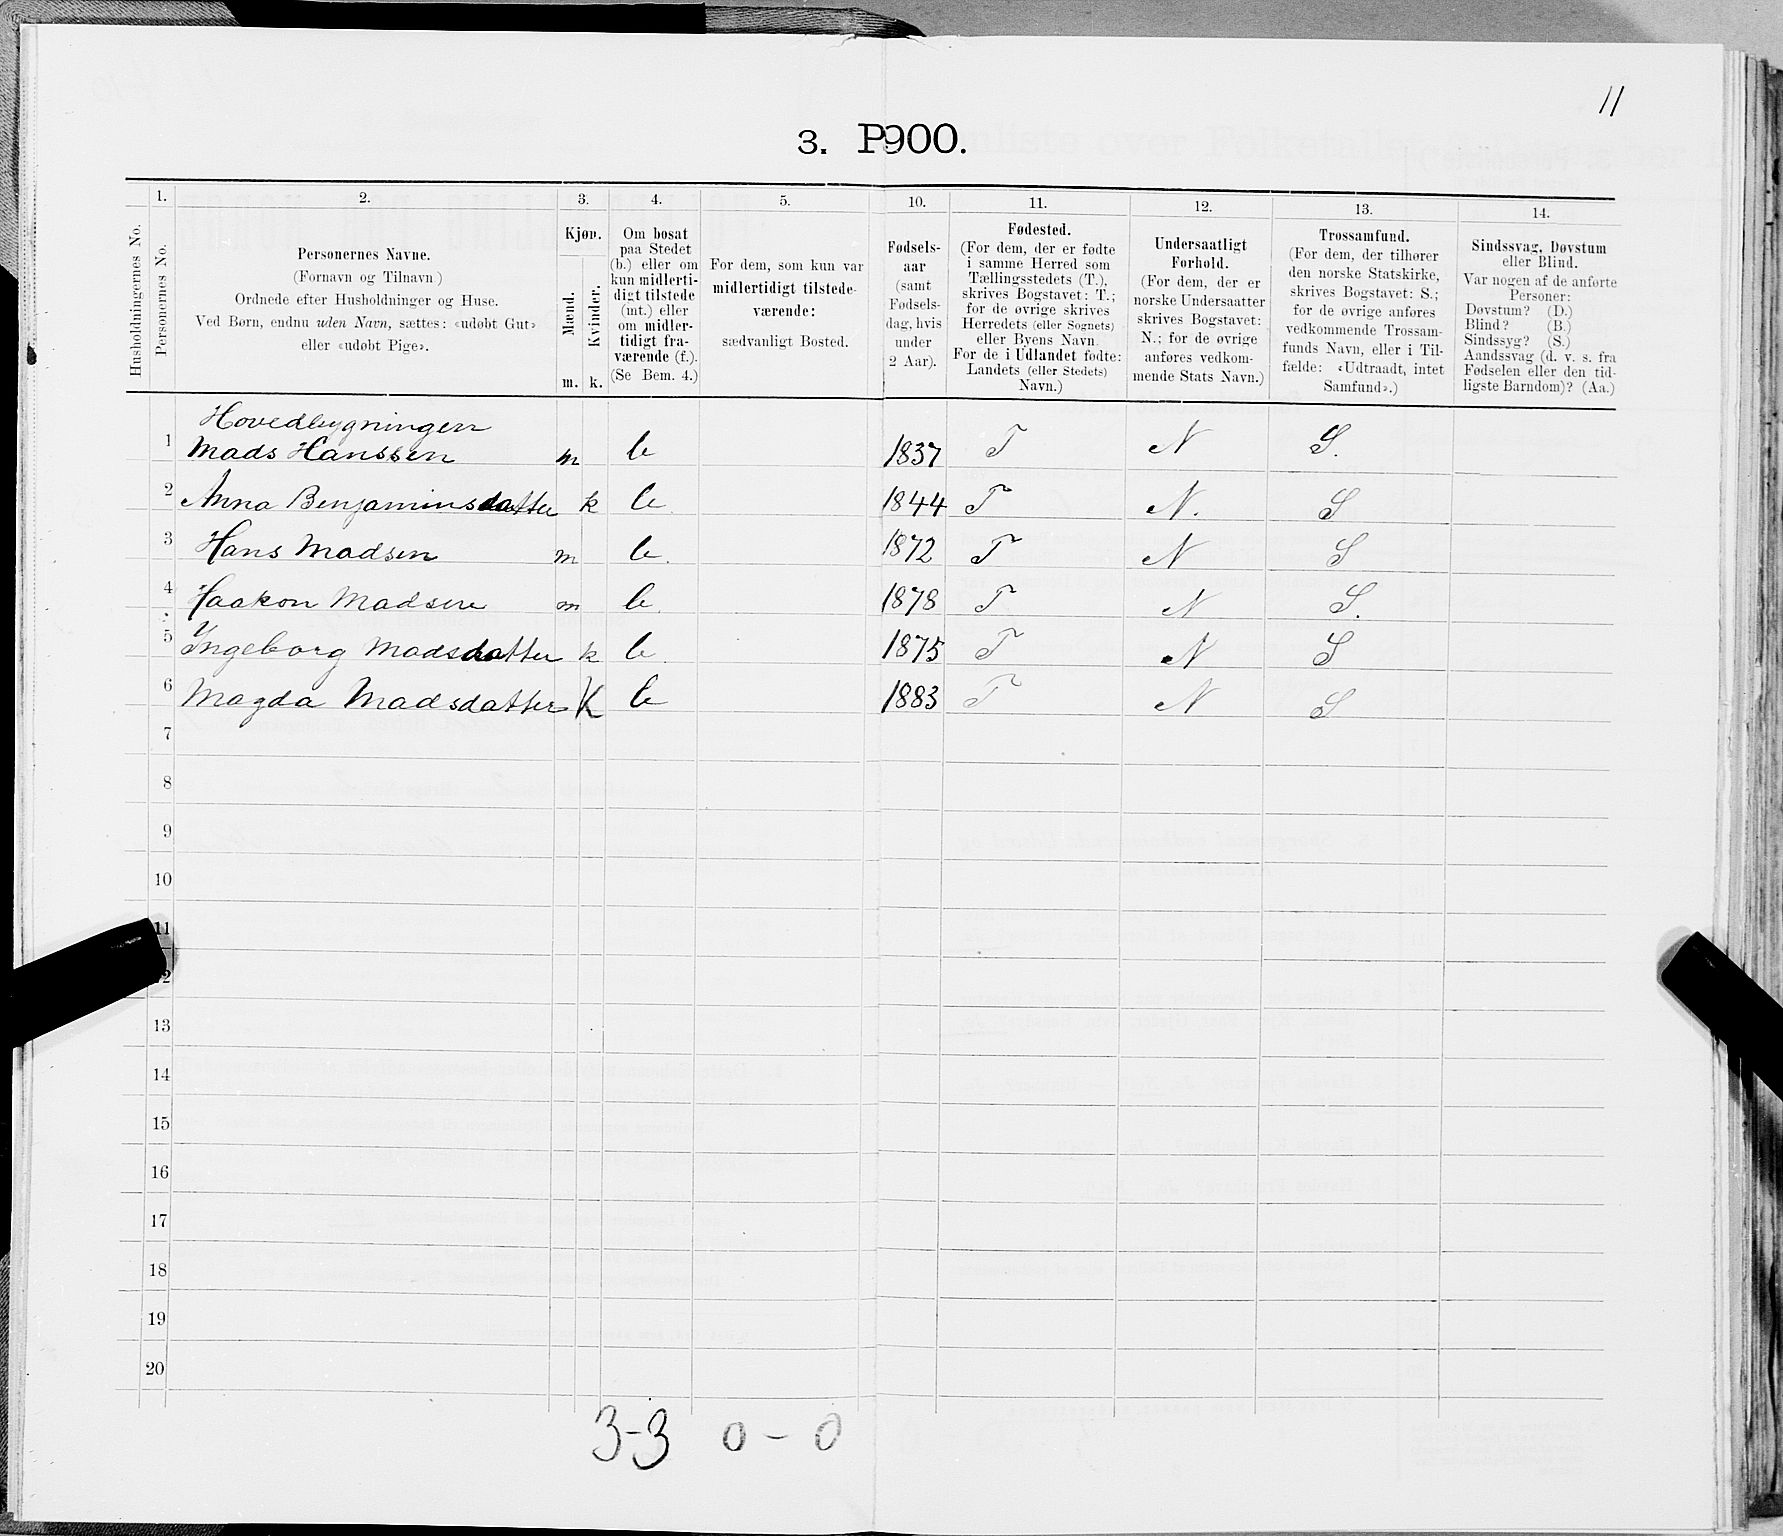 11
3. P900.
1. 2. 3. 4. 5. 10. 11. 12. 13. 14.
Husholdningernes No.
Personernes No.
Personernes Navne.
(Fornavn og Tilnavn.)
Ordnede efter Husholdninger og Huse.
Ved Børn, endnu uden Navn, sættes: «udøbt Gut»
eller «udøbt Pige».
Kjøn.
Mænd.
Kvinder.
m. k.
Om bosat
paa Stedet
(b.) eller om
kun midlerti-
digt tilstede
(mt.) eller
om midler-
tidigt fra-
værende (f.).
(Se Bem. 4.)
For dem, som kun var
midlertidigt tilstede-
værende:
sædvanligt Bosted.
Fødsels-
aar
(samt
Fødsels-
dag, hvis
under
2 Aar).
Fødested.
(For dem, der er fødte
i samme Herred som
Tællingsstedets (T.),
skrives Bogstavet: T.;
for de øvrige skrives
Herredets (eller Sognets)
eller Byens Navn.
For de i Udlandet fødte:
Landets (eller Stedets)
Navn.)
Undersaatligt
Forhold.
(For dem, der er
norske Undersaatter
skrives Bogstavet:
N.; for de øvrige
anføres vedkom-
mende Stats Navn.)
Trossamfund.
(For dem, der tilhører
den norske Statskirke,
skrives Bogstavet: S.;
for de øvrige anføres
vedkommende Trossam-
funds Navn, eller i Til-
fælde: «Udtraadt, intet
Samfund».)
Sindssvag, Døvstum
eller Blind.
Var nogen af de anførte
Personer:
Døvstum? (D.)
Blind? (B.)
Sindssyg? (S.)
Aandssvag (d. v. s. fra
Fødselen eller den tid-
ligste Barndom)? (Aa.)
Hovedbygningen
1 Mads Hanssen m b 1837 T N S.
2 Anna Benjaminsdatter k b. 1844 T N. S
3 Hans Madsen m b. 1872 T N S
4 Haakon Madsen m b. 1878 T N S.
5 Ingeborg Madsdatter k b. 1875 T N S
6 Magda Madsdatter K b 1883 T N S
7
8
9
10
11
12
13
14
15
16
17
18
19
20
3-3 0-0